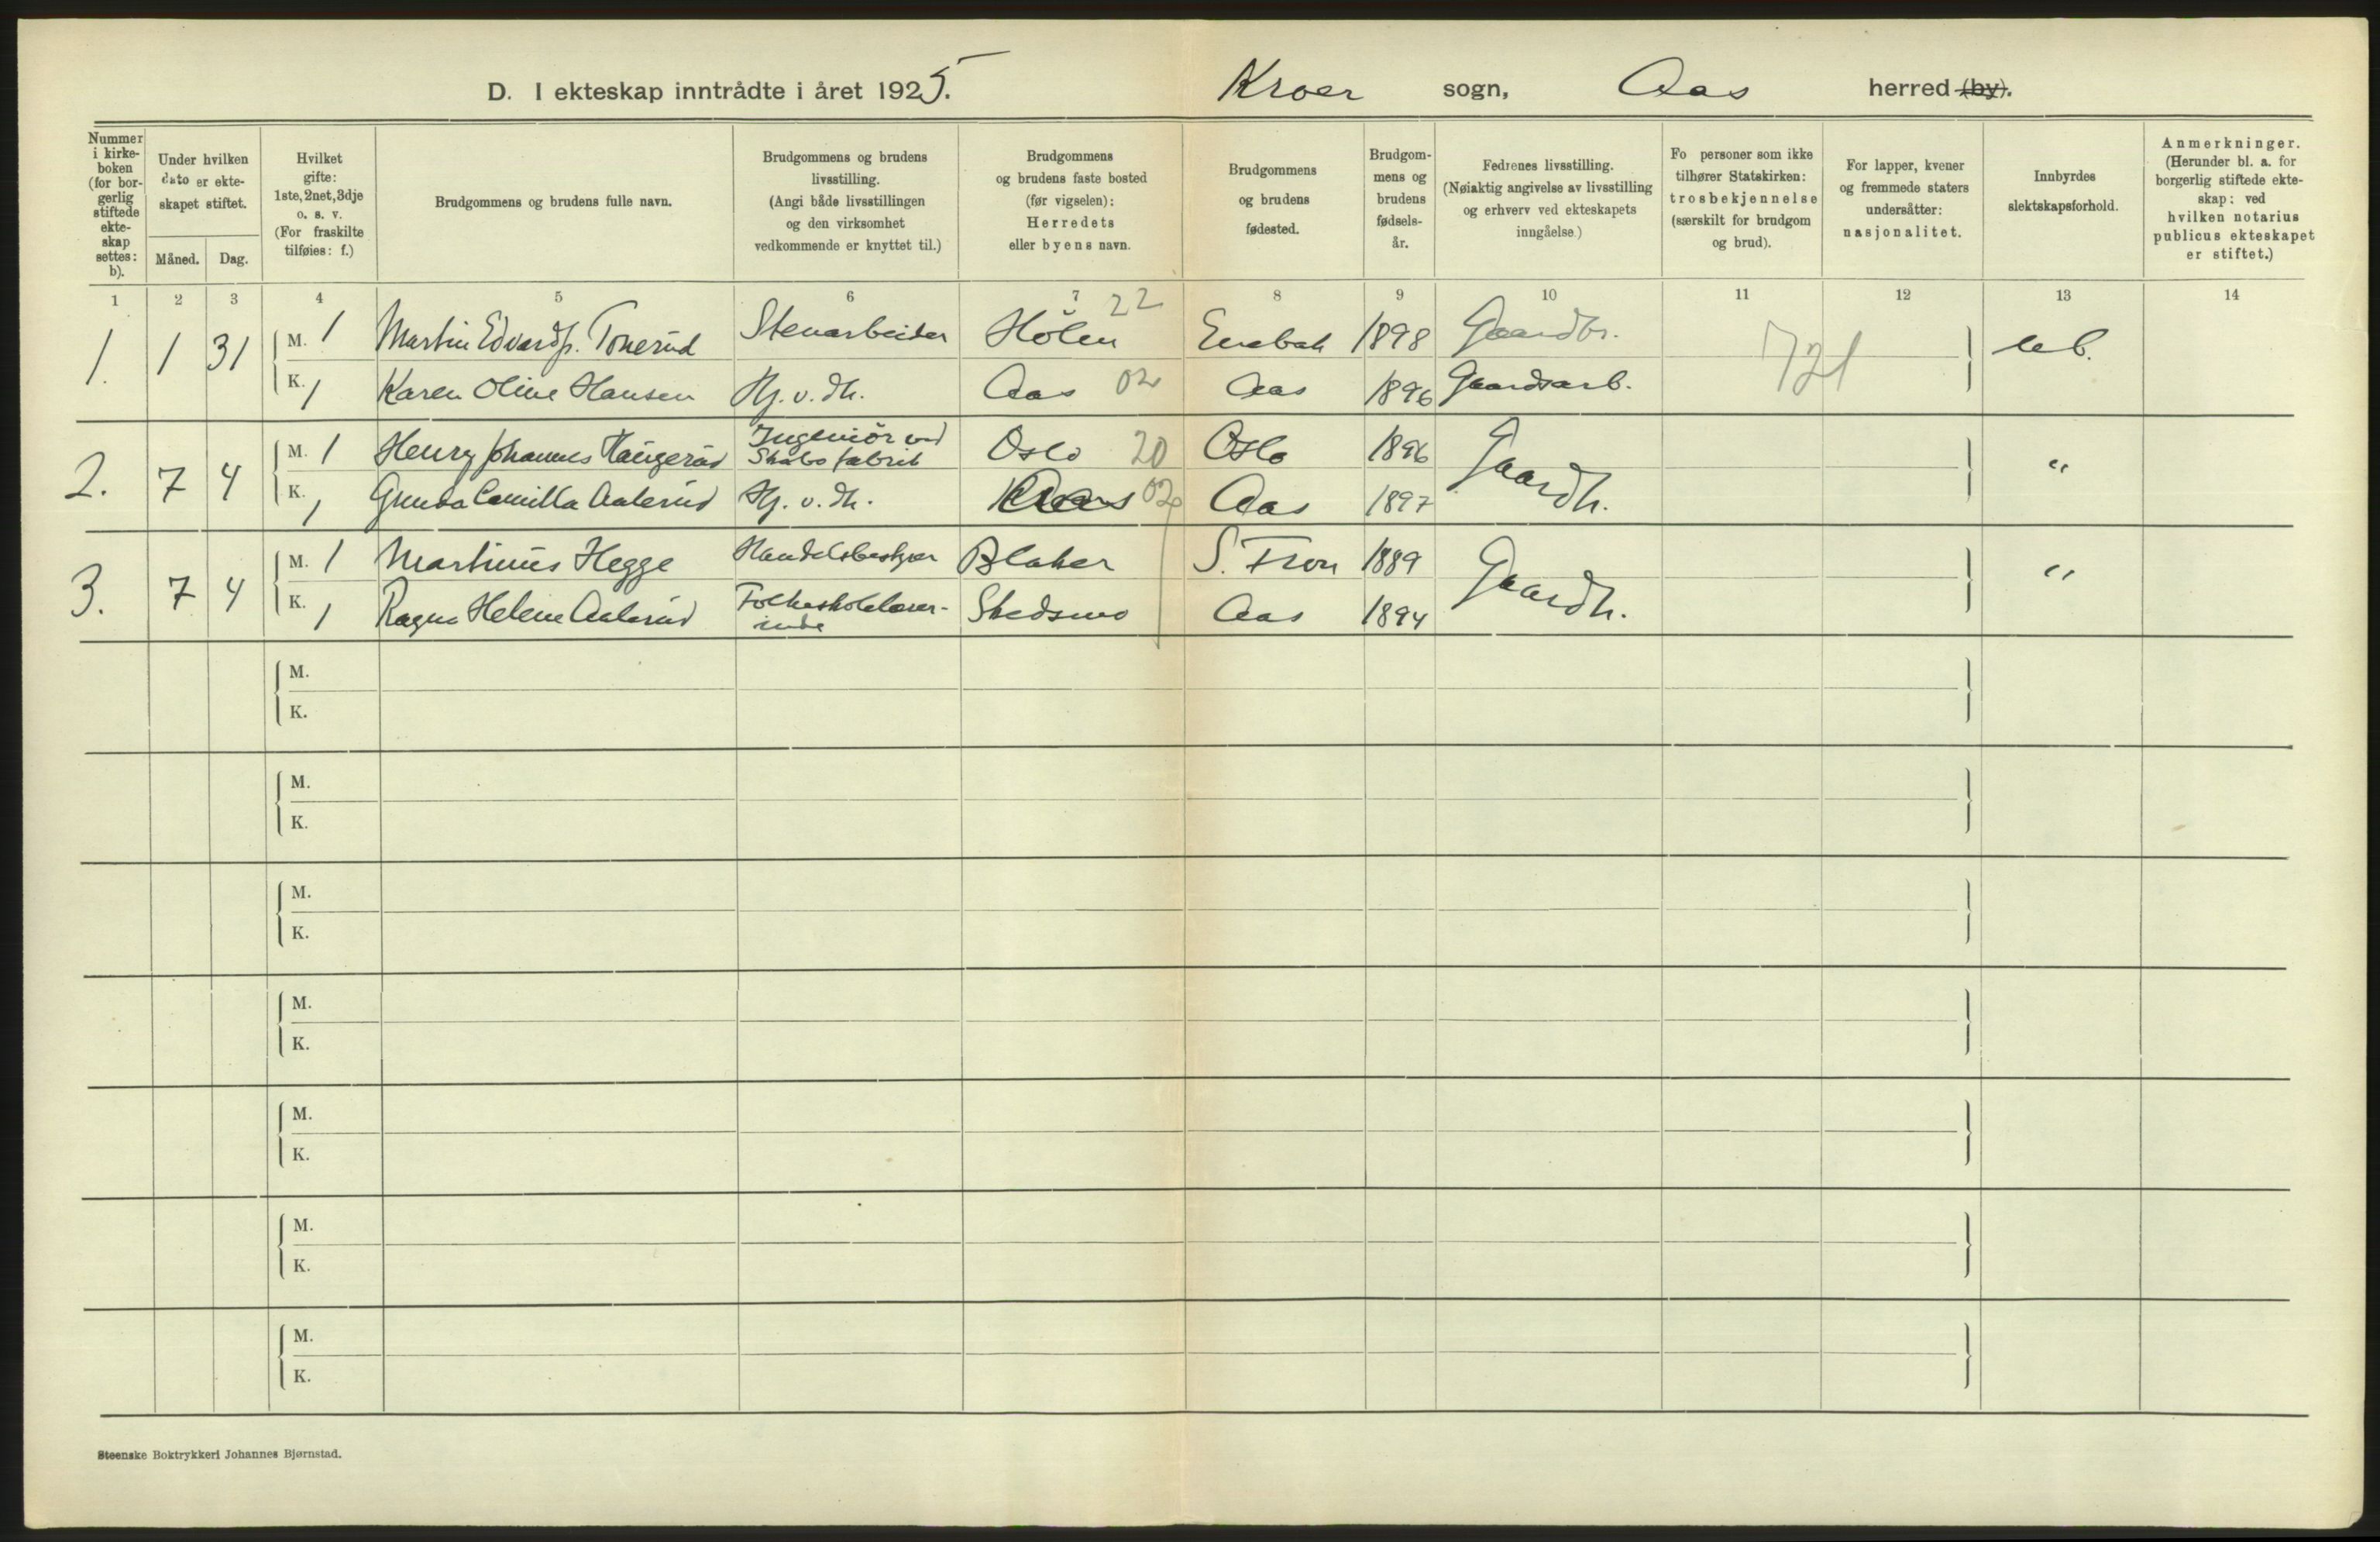 D. I ekteskap inntrådte i året 1925. Kroer sogn, Aas herred (by).
Nummer i kirkeboken (for borgerlig stiftede ekteskap settes: b).
Under hvilken dato er ekteskapet stiftet.
Måned. Dag.
Hvilket gifte: 1ste, 2net, 3dje o. s. v. (For fraskilte tilføies: f.)
Brudgommens og brudens fulle navn.
Brudgommens og brudens livsstilling. (Angi både livsstillingen og den virksomhet vedkommende er knyttet til.)
Brudgommens og brudens faste bosted (før vigselen): Herredets eller byens navn.
Brudgommens og brudens fødested.
Brudgommens og brudens fødselsår.
Fedrenes livsstilling. (Nøiaktig angivelse av livsstilling og erhverv ved ekteskapets inngåelse.)
Fo personer som ikke tilhører Statskirken: trosbekjennelse (særskilt for brudgom og brud).
For lapper, kvener og fremmede staters undersåtter: nasjonalitet.
Innbyrdes slektskapsforhold.
Anmerkninger. (Herunder bl. a. for borgerlig stiftede ekteskap: ved hvilken notarius publicus ekteskapet er stiftet.)
1 2 3 4 5 6 7 8 9 10 11 12 13 14
1. 1 31 M. 1 Martin Edvards. Tonerud Stenarbeider Hölen 22 Enebak 1898 Gaardbr. 721 ub.
K. 1 Karen Oline Hansen Hj. v. dh. Aas 02 Aas 1896 Gaardsarb.
2. 7 4 M. 1 Henry Johannes Haugerud Ingeniör ved Skabo fabrik Oslo 20 Oslo 1896 Gaardb. "
K. 1 Gunda Camilla Aalerud Hj. v. dh. Aas 02 Aas 1897
3. 7 4 M. 1 Martinius Hegge Handelsbestyrer Blaker S. Fron 1889 Gaardb. "
K. 1 Ragna Helene Aalerud Folkeskolelærerinde Skedsmo Aas 1894
M.
K.
M.
K.
M.
K.
M.
K.
M.
K.
M.
K.
M.
K.
Steenske Boktrykkeri Johannes Bjørnstad.